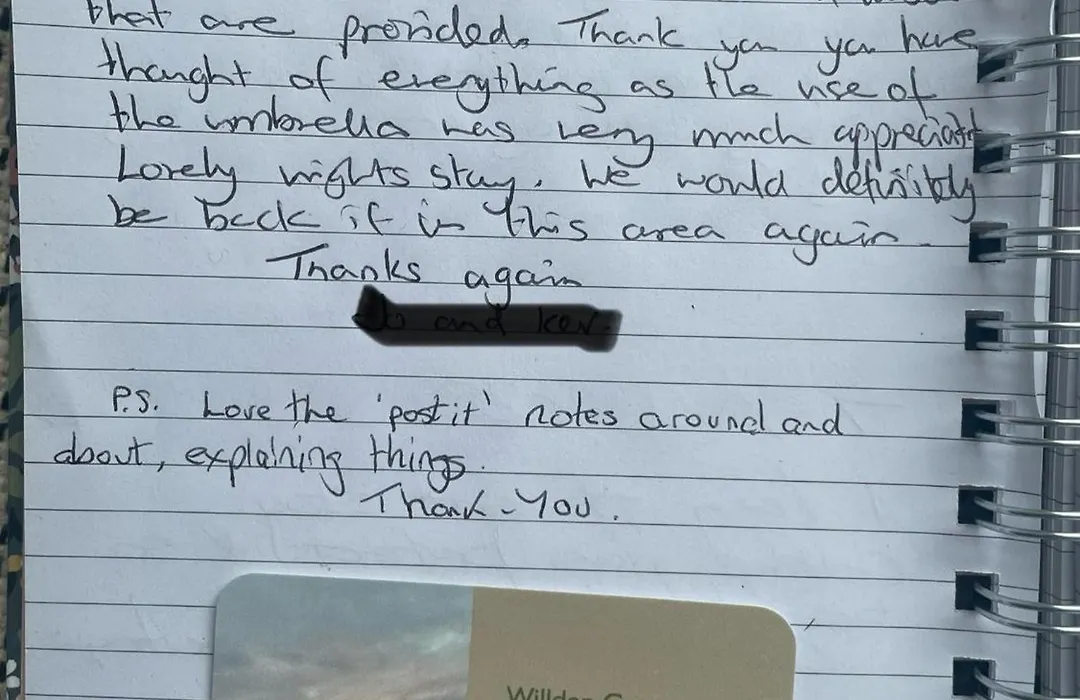 that are provided. Thank you you have
thought of everything as the use of
the umbrella was very much appreciat
Lovely nights stay. We would definitely
be back if in this area again.
Thanks again
P.S. Love the 'post it' notes around and
about, explaining things.
Thank-You.